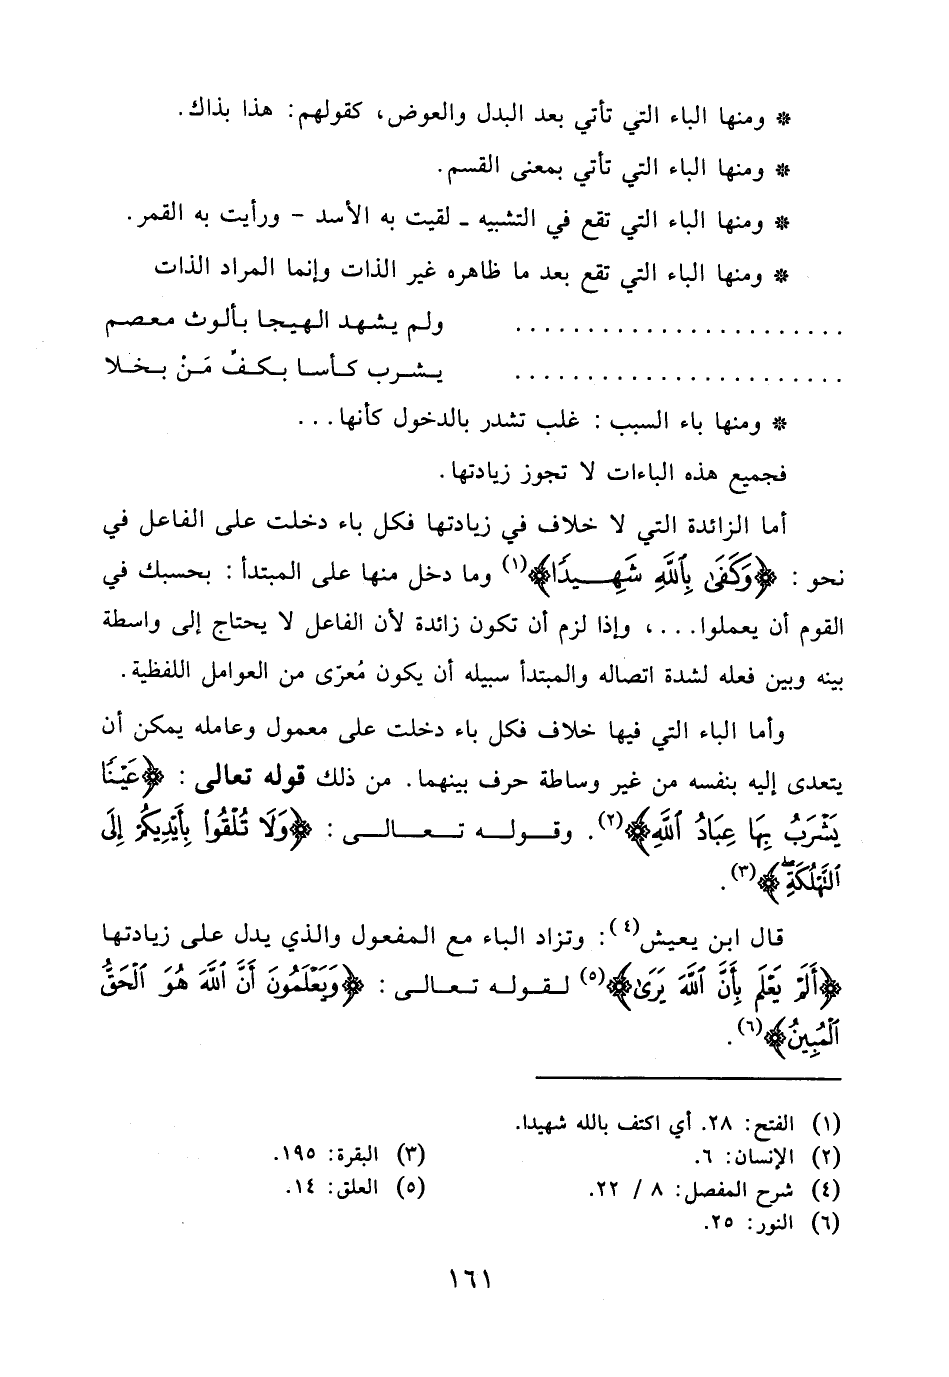 * ومنها الباء التي تأتي بعد البدل والعوض، كقولهم: هذا بذاك.
* ومنها الباء التي تأتي بمعنى القسم.
* ومنها الباء التي تقع في التشبيه ـ لقيت به الأسد - ورأيت به القمر.
* ومنها الباء التي تقع بعد ما ظاهره غير الذات وإنما المراد الذات
....................... ولم يشهد الهيجا بألوث معصم
....................... يشرب كأسا بكفّ مَنْ بخلا
* ومنها باء السبب : غلب تشذر بالدخول كأنها...
فجميع هذه الباءات لا تجوز زيادتها.
أما الزائدة التي لا خلاف في زيادتها فكل باء دخلت على الفاعل في
نحو : ﴿وَكَفَىٰ بِٱللَّهِ شَهِيدًا﴾(١) وما دخل منها على المبتدأ : بحسبك في
القوم أن يعملوا...، وإذا لزم أن تكون زائدة لأن الفاعل لا يحتاج إلى واسطة
بينه وبين فعله لشدة اتصاله والمبتدأ سبيله أن يكون مُعرّى من العوامل اللفظية.
وأما الباء التي فيها خلاف فكل باء دخلت على معمول وعامله يمكن أن
يتعدى إليه بنفسه من غير وساطة حرف بينهما. من ذلك قوله تعالى : ﴿عَيْنًا
يَشْرَبُ بِهَا عِبَادُ ٱللَّهِ﴾(٢). وقوله تعالى : ﴿وَلَا تُلْقُوا۟ بِأَيْدِيكُمْ إِلَى
ٱلتَّهْلُكَةِ﴾(٣).
قال ابن يعيش(٤): وتزاد الباء مع المفعول والذي يدل على زيادتها
﴿أَلَمْ يَعْلَم بِأَنَّ ٱللَّهَ يَرَىٰ﴾(٥) لقوله تعالى : ﴿وَيَعْلَمُونَ أَنَّ ٱللَّهَ هُوَ ٱلْحَقُّ
ٱلْمُبِينُ﴾(٦).
(١) الفتح: ٢٨. أي اكتف بالله شهيدا.
(٢) الإنسان: ٦. (٣) البقرة: ١٩٥.
(٤) شرح المفصل: ٨ / ٢٢. (٥) العلق: ١٤.
(٦) النور: ٢٥.
١٦١